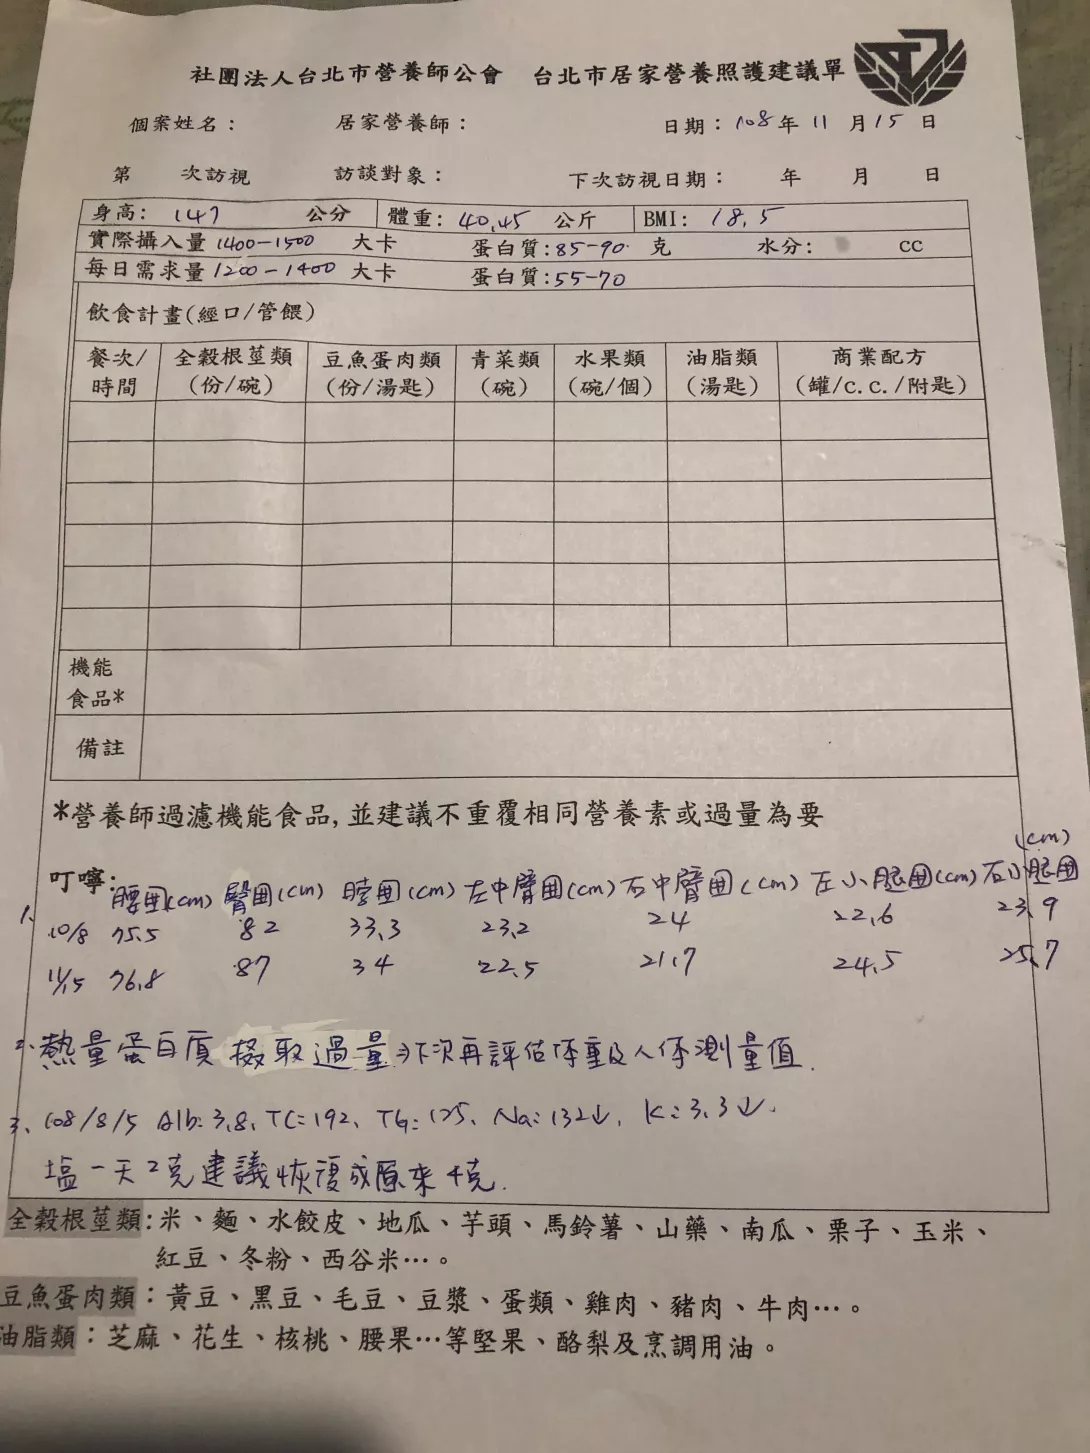 社團法人台北市營養師公會 台北市居家營養照護建議單
個案姓名： 居家營養師： 日期：108年 11 月 15 日
第 次訪視 訪談對象： 下次訪視日期： 年 月 日
身高: 147 公分 體重: 40.45 公斤 BMI: 18.5
實際攝入量 1400-1500 大卡 蛋白質:85-90 克 水分: cc
每日需求量 1200-1400 大卡 蛋白質:55-70
飲食計畫(經口/管餵)
餐次/時間 全穀根莖類(份/碗) 豆魚蛋肉類(份/湯匙) 青菜類(碗) 水果類(碗/個) 油脂類(湯匙) 商業配方(罐/c.c./附匙)
機能食品*
備註
*營養師過濾機能食品,並建議不重覆相同營養素或過量為要
叮嚀:
1. 腰囲(cm) 臀囲(cm) 脖囲(cm) 左中臂囲(cm) 右中臂囲(cm) 左小腿囲(cm) 右小腿囲(cm)
10/8 75.5 82 33.3 23.2 24 22.6 23.9
11/15 76.8 87 34 22.5 21.7 24.5 25.7
2. 熱量蛋白質 攝取過量→下次再評估体重及人体測量值.
3. 108/8/5 Alb: 3.8, TC=192, TG: 125, Na: 132↓, K: 3.3↓.
塩一天2克建議恢復成原來4克.
全穀根莖類:米、麵、水餃皮、地瓜、芋頭、馬鈴薯、山藥、南瓜、栗子、玉米、
紅豆、冬粉、西谷米…。
豆魚蛋肉類：黃豆、黑豆、毛豆、豆漿、蛋類、雞肉、豬肉、牛肉…。
油脂類：芝麻、花生、核桃、腰果…等堅果、酪梨及烹調用油。